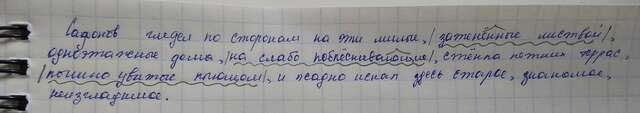 Сафонов глядел по сторонам на эти милые, |затенённые листвой|,
одноэтажные дома, |на слабо поблёскивающие|, стёкла летних террас,
|пышно увитые плющом|, и жадно искал здесь старое, знакомое,
неизгладимое.